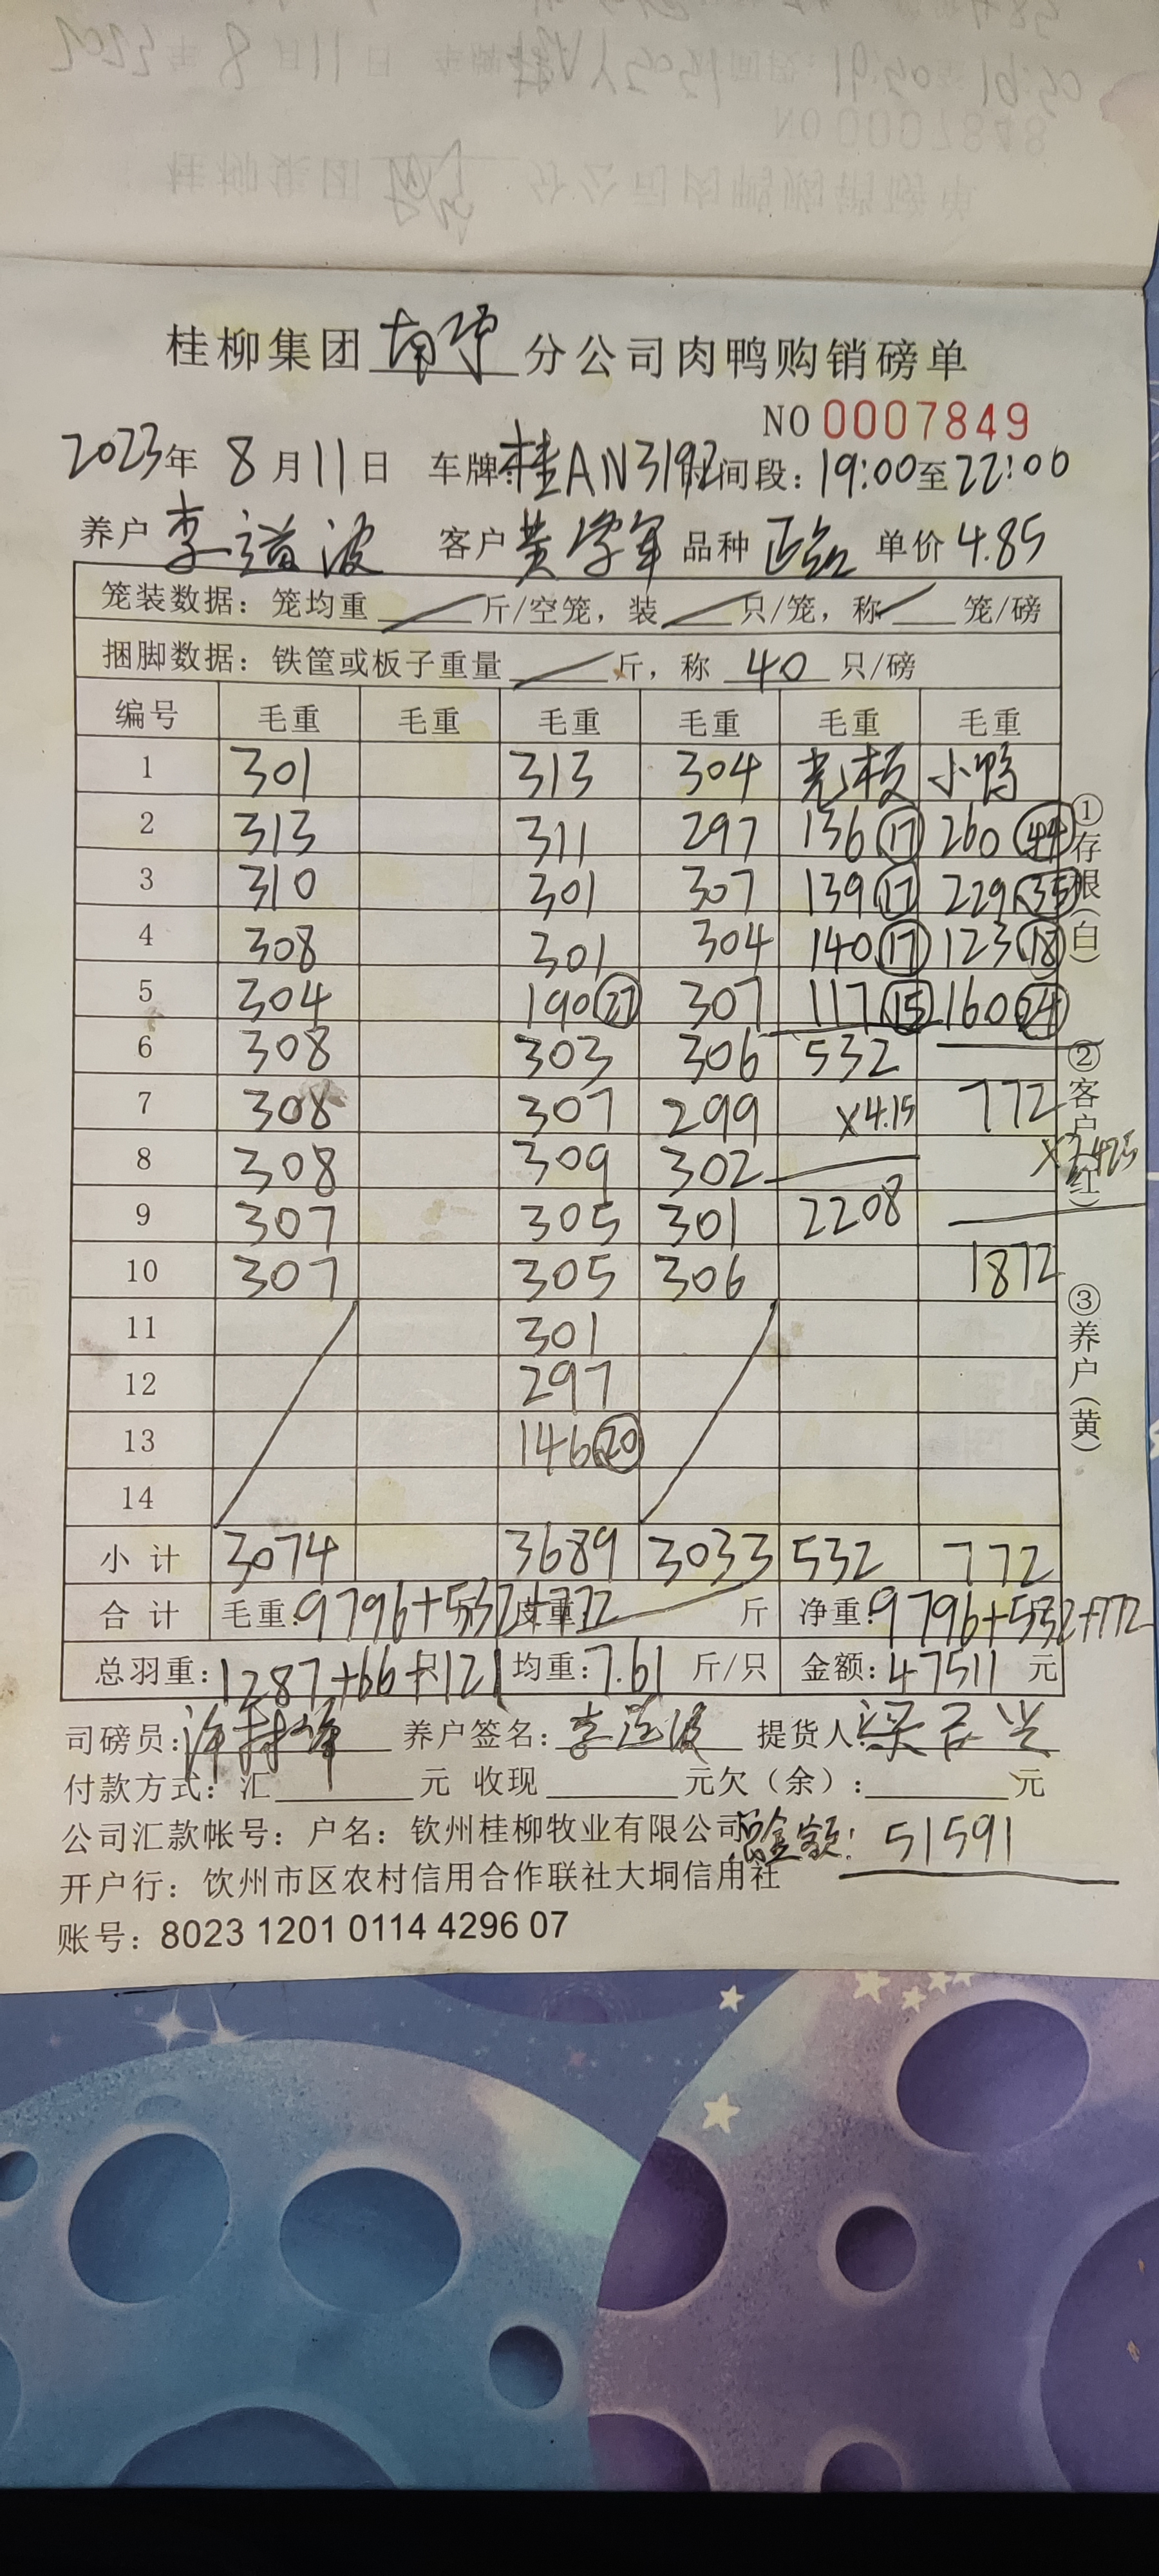 桂柳集团南宁分公司肉鸭购销磅单
NO 0007849
2023年 8月11日 车牌:桂AN3192 时间段:19:00至22:00
养户 李道波 客户 黄学军 品种 单价 4.85
笼装数据:笼均重 斤/空笼,装 只/笼,称 笼/磅
捆脚数据:铁筐或板子重量 斤,称 40 只/磅
编号 毛重 毛重 毛重 毛重 毛重 毛重
1 301 313 304 小鸭
2 313 311 297 136 ⑰ 260 ㊹
3 310 301 307 139 ⑰ 229 ㉟
4 308 301 304 140 ⑰ 123 ⑱
5 304 190 ㉗ 307 117 ⑮ 160 ㉔
6 308 303 306 532
7 308 307 299 ×4.15 772
8 308 309 302 ×2.425
9 307 305 301 2208
10 307 305 306 1872
11 301
12 297
13 146 ⑳
14
小计 3074 3689 3033 532 772
合计 毛重:9796+532+772 皮重: 斤 净重:9796+532+772
总羽重:1287+66+121只 均重:7.61 斤/只 金额:47511 元
司磅员: 养户签名:李道波 提货人:
付款方式:汇 元 收现 元欠(余): 元
公司汇款帐号:户名:钦州桂柳牧业有限公司 总金额:51591
开户行:饮州市区农村信用合作联社大垌信用社
账号:8023 1201 0114 4296 07
①存根(白)
②客户(红)
③养户(黄)